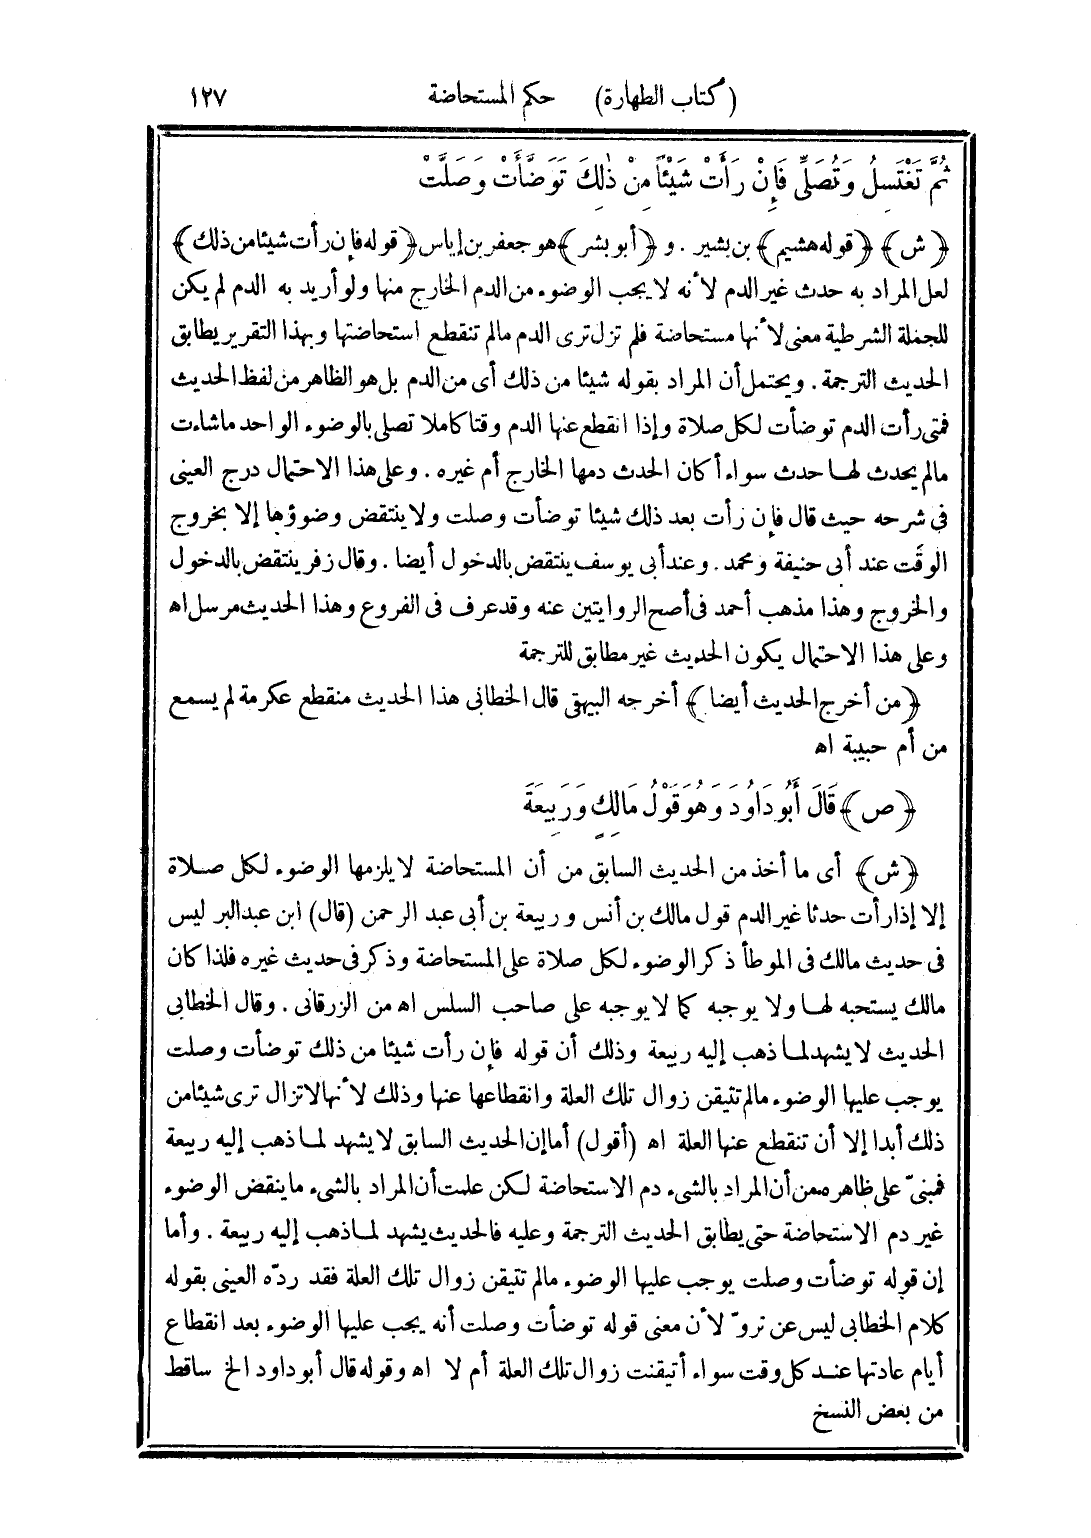 (كتاب الطهارة) حكم المستحاضة ١٢٧
ثُمَّ تَغْتَسِلُ وَتُصَلِّي فَإِنْ رَأَتْ شَيْئًا مِنْ ذٰلِكَ تَوَضَّأَتْ وَصَلَّتْ
﴿ش﴾ ﴿قوله هشيم﴾ بن بشير . و ﴿أبو بشر﴾ هو جعفر بن إياس ﴿قوله فإن رأت شيئا من ذلك﴾
لعل المراد به حدث غير الدم لأنه لا يجب الوضوء من الدم الخارج منها ولو أريد به الدم لم يكن
للجملة الشرطية معنى لأنها مستحاضة فلم تزل ترى الدم مالم تنقطع استحاضتها وبهذا التقرير يطابق
الحديث الترجمة . ويحتمل أن المراد بقوله شيئا من ذلك أى من الدم بل هو الظاهر من لفظ الحديث
فمتى رأت الدم توضأت لكل صلاة وإذا انقطع عنها الدم وقتا كاملا تصلى بالوضوء الواحد ماشاءت
مالم يحدث لها حدث سواء أكان الحدث دمها الخارج أم غيره . وعلى هذا الاحتمال درج العينى
فى شرحه حيث قال فإن رأت بعد ذلك شيئا توضأت وصلت ولا ينتقض وضوؤها إلا بخروج
الوقت عند أبى حنيفة ومحمد . وعند أبى يوسف ينتقض بالدخول أيضا . وقال زفر ينتقض بالدخول
والخروج وهذا مذهب أحمد فى أصح الروايتين عنه وقد عرف فى الفروع وهذا الحديث مرسل اه
وعلى هذا الاحتمال يكون الحديث غير مطابق للترجمة
﴿من أخرج الحديث أيضا﴾ أخرجه البيهقى قال الخطابى هذا الحديث منقطع عكرمة لم يسمع
من أم حبيبة اه
﴿ص﴾ قَالَ أَبُو دَاوُدَ وَهُوَ قَوْلُ مَالِكٍ وَرَبِيعَةَ
﴿ش﴾ أى ما أخذ من الحديث السابق من أن المستحاضة لا يلزمها الوضوء لكل صلاة
إلا إذا رأت حدثا غير الدم قول مالك بن أنس وربيعة بن أبى عبد الرحمن (قال) ابن عبد البر ليس
فى حديث مالك فى الموطأ ذكر الوضوء لكل صلاة على المستحاضة وذكر فى حديث غيره فلذا كان
مالك يستحبه لها ولا يوجبه كما لا يوجبه على صاحب السلس اه من الزرقانى . وقال الخطابى
الحديث لا يشهد لما ذهب إليه ربيعة وذلك أن قوله فإن رأت شيئا من ذلك توضأت وصلت
يوجب عليها الوضوء مالم تتيقن زوال تلك العلة وانقطاعها عنها وذلك لأنها لا تزال ترى شيئا من
ذلك أبدا إلا أن تنقطع عنها العلة اه (أقول) أما إن الحديث السابق لا يشهد لما ذهب إليه ربيعة
فمبنىّ على ظاهره من أن المراد بالشىء دم الاستحاضة لكن علمت أن المراد بالشىء ما ينقض الوضوء
غير دم الاستحاضة حتى يطابق الحديث الترجمة وعليه فالحديث يشهد لما ذهب إليه ربيعة . وأما
إن قوله توضأت وصلت يوجب عليها الوضوء مالم تتيقن زوال تلك العلة فقد ردّه العينى بقوله
كلام الخطابى ليس عن تروّ لأن معنى قوله توضأت وصلت أنه يجب عليها الوضوء بعد انقطاع
أيام عادتها عند كل وقت سواء أتيقنت زوال تلك العلة أم لا اه وقوله قال أبو داود الخ ساقط
من بعض النسخ